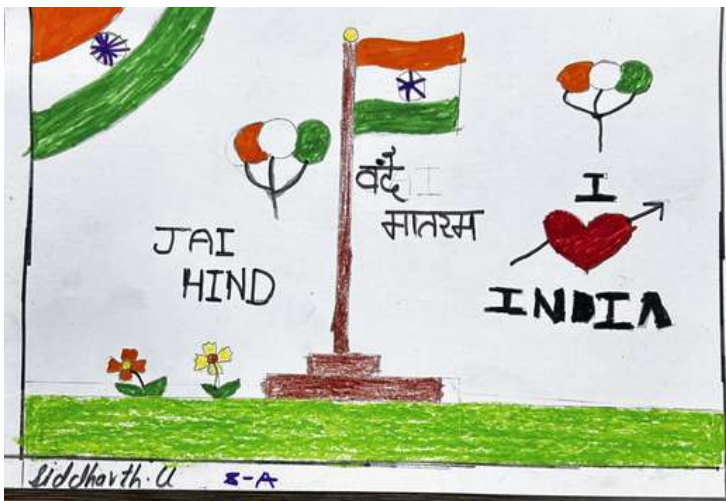 JAI
HIND
वंदे
मातरम
I
INDIA
Siddharth.U 8-A